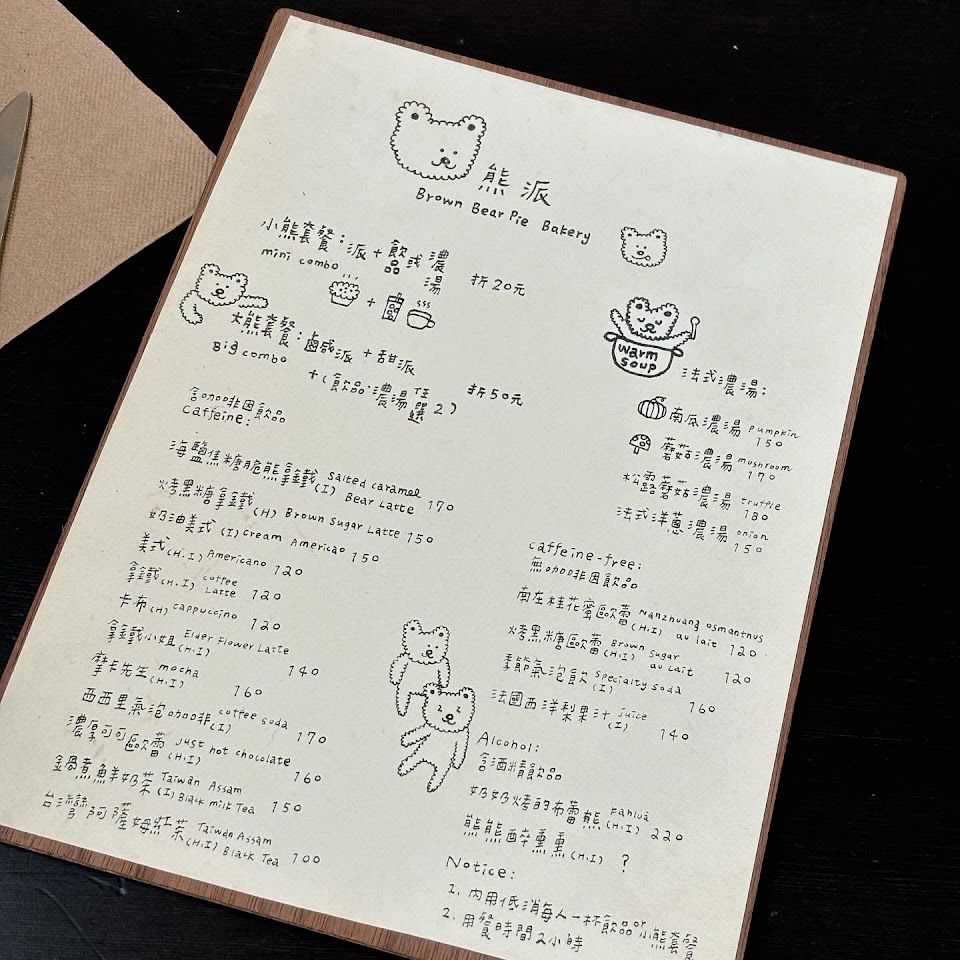 熊派
Brown Bear Pie Bakery
小熊套餐：派＋飲品或濃湯 折20元
mini combo
大熊套餐：鹹派＋甜派
Big combo
＋(飲品．濃湯任選2) 折50元
含咖啡因飲品
Caffeine:
海鹽焦糖脆熊拿鐵 (I) Salted caramel Bear Latte 170
烤黑糖拿鐵 (H) Brown Sugar Latte 150
奶油美式 (I) Cream Americao 150
美式 (H.I) Americano 120
拿鐵 (H.I) coffee Latte 120
卡布 (H) cappuccino 120
拿鐵小姐 Elder Flower Latte (H.I) 140
摩卡先生 mocha (H.I) 160
西西里氣泡咖啡 coffee soda (I) 170
濃厚可可歐蕾 Just hot chocolate (H.I) 160
鍋煮鮮奶茶 Taiwan Assam (I) Black milk Tea 150
台灣阿薩姆紅茶 Taiwan Assam (H.I) Black Tea 100
warm soup
法式濃湯：
南瓜濃湯 pumpkin 150
蘑菇濃湯 mushroom 170
松露蘑菇濃湯 truffle 180
法式洋蔥濃湯 onion 150
caffeine-free:
無咖啡因飲品
南庄桂花蜜歐蕾 Nanzhuang osmanthus (H.I) au lait 120
烤黑糖歐蕾 Brown sugar (H.I) au lait 120
季節氣泡飲 specialty soda (I) 160
法國西洋梨果汁 juice (I) 140
Alcohol:
含酒精飲品
奶奶烤的布蕾熊 Kahlua (H.I) 220
熊熊醉熏熏 (H.I) ?
Notice:
1. 內用低消每人一杯飲品or小熊套餐
2. 用餐時間2小時